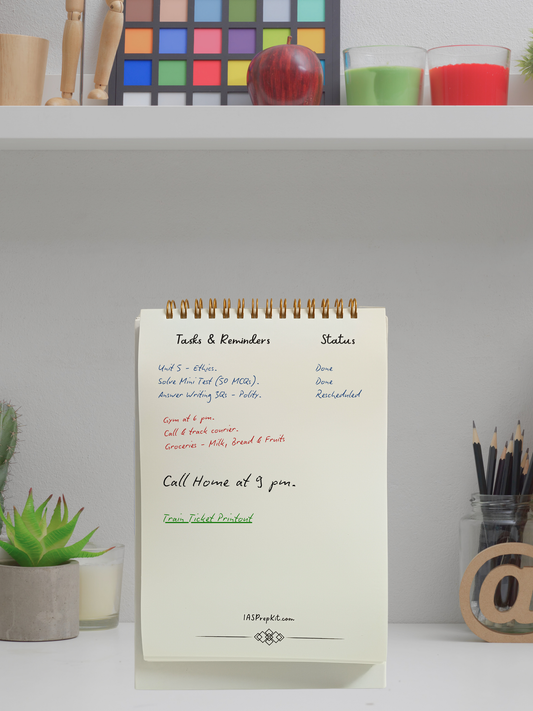 Tasks & Reminders Status
Unit 5 - Ethics. Done
Solve Mini Test (50 MCQs). Done
Answer Writing 3Qs - Polity. Rescheduled
Gym at 6 pm.
Call & track courier.
Groceries - Milk, Bread & Fruits
Call Home at 9 pm.
Train Ticket Printout
IASPrepKit.com
@